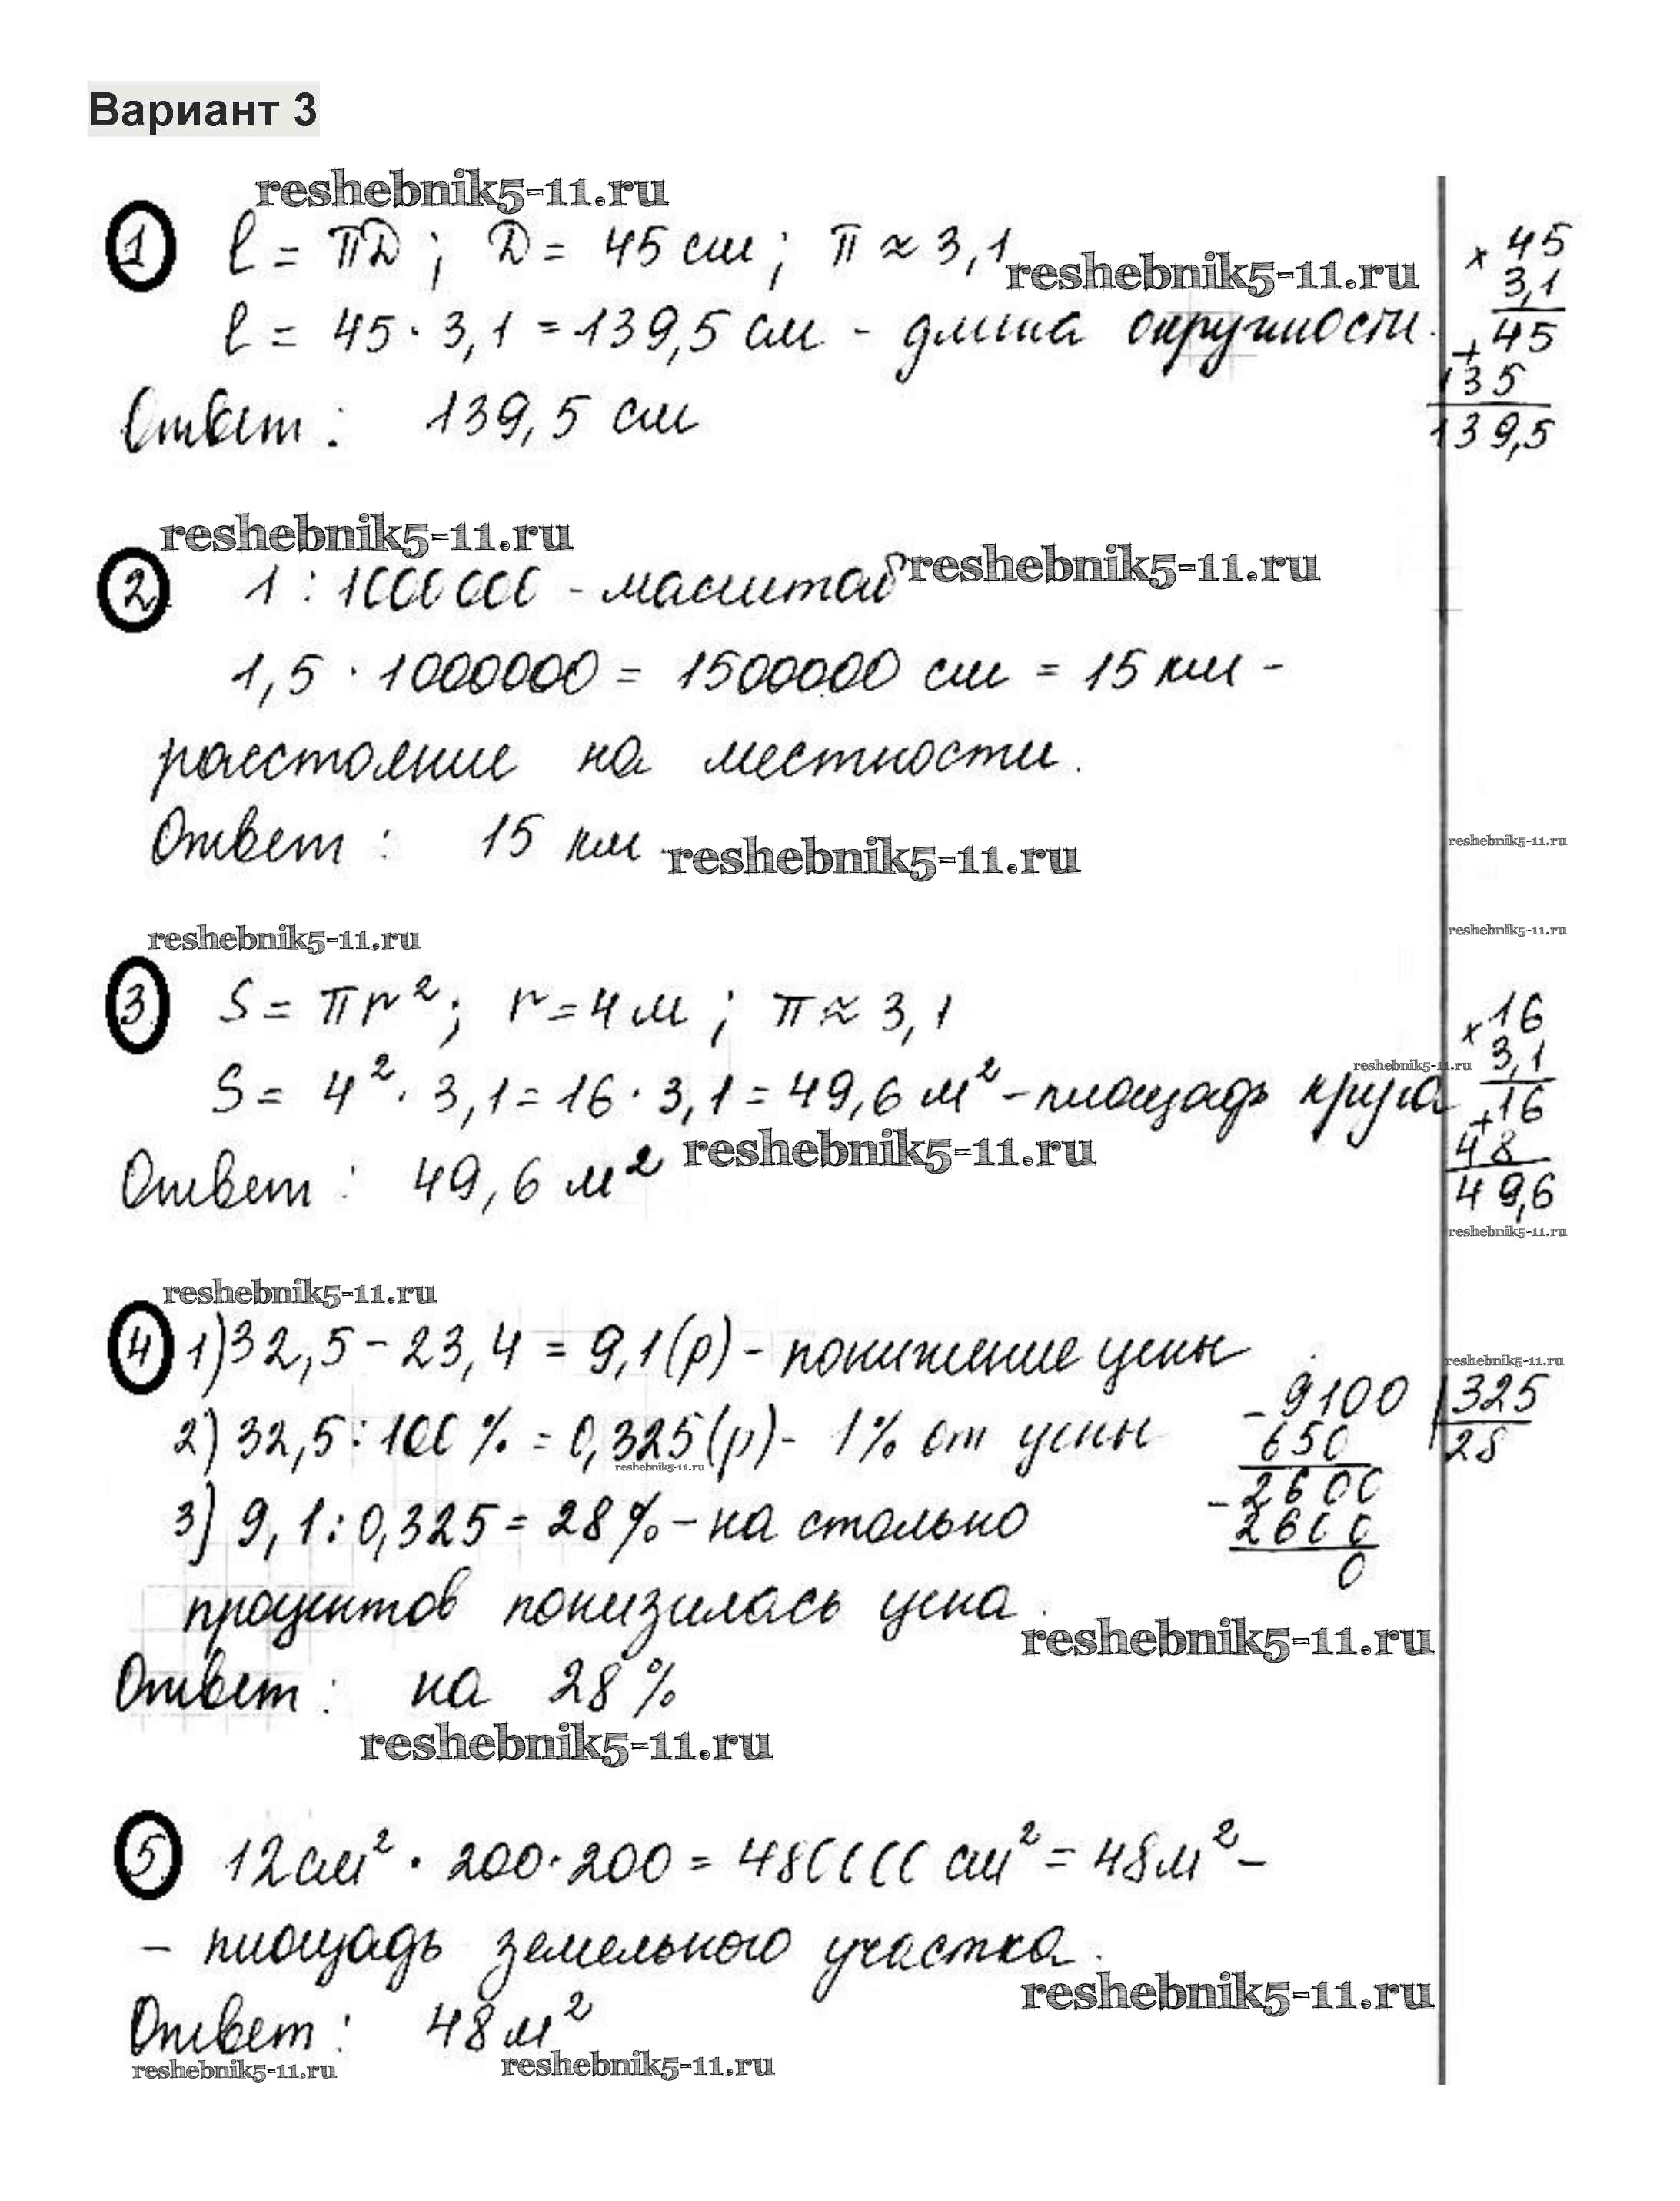 Вариант 3
reshebnik5-11.ru
1 l = πD ; D = 45 см ; π ≈ 3,1
reshebnik5-11.ru
l = 45 · 3,1 = 139,5 см - длина окружности.
Ответ : 139,5 см
× 45
3,1
+ 45
135
139,5
reshebnik5-11.ru
2 1 : 1000000 - масштаб
reshebnik5-11.ru
1,5 · 1000000 = 1500000 см = 15 км -
расстояние на местности.
Ответ : 15 км.
reshebnik5-11.ru
reshebnik5-11.ru
reshebnik5-11.ru
reshebnik5-11.ru
3 S = πr²; r = 4 м ; π ≈ 3,1
S = 4² · 3,1 = 16 · 3,1 = 49,6 м² - площадь круга
reshebnik5-11.ru
reshebnik5-11.ru
Ответ : 49,6 м²
× 16
3,1
+ 16
48
49,6
reshebnik5-11.ru
reshebnik5-11.ru
4 1) 32,5 - 23,4 = 9,1 (р) - понижение цены
reshebnik5-11.ru
2) 32,5 : 100 % = 0,325 (р) - 1% от цены
reshebnik5-11.ru
3) 9,1 : 0,325 = 28 % - на столько
процентов понизилась цена.
reshebnik5-11.ru
Ответ : на 28 %
- 9100 | 325
650 28
- 2600
2600
0
reshebnik5-11.ru
5 12 см² · 200 · 200 = 480000 см² = 48 м² -
- площадь земельного участка.
reshebnik5-11.ru
Ответ : 48 м²
reshebnik5-11.ru
reshebnik5-11.ru